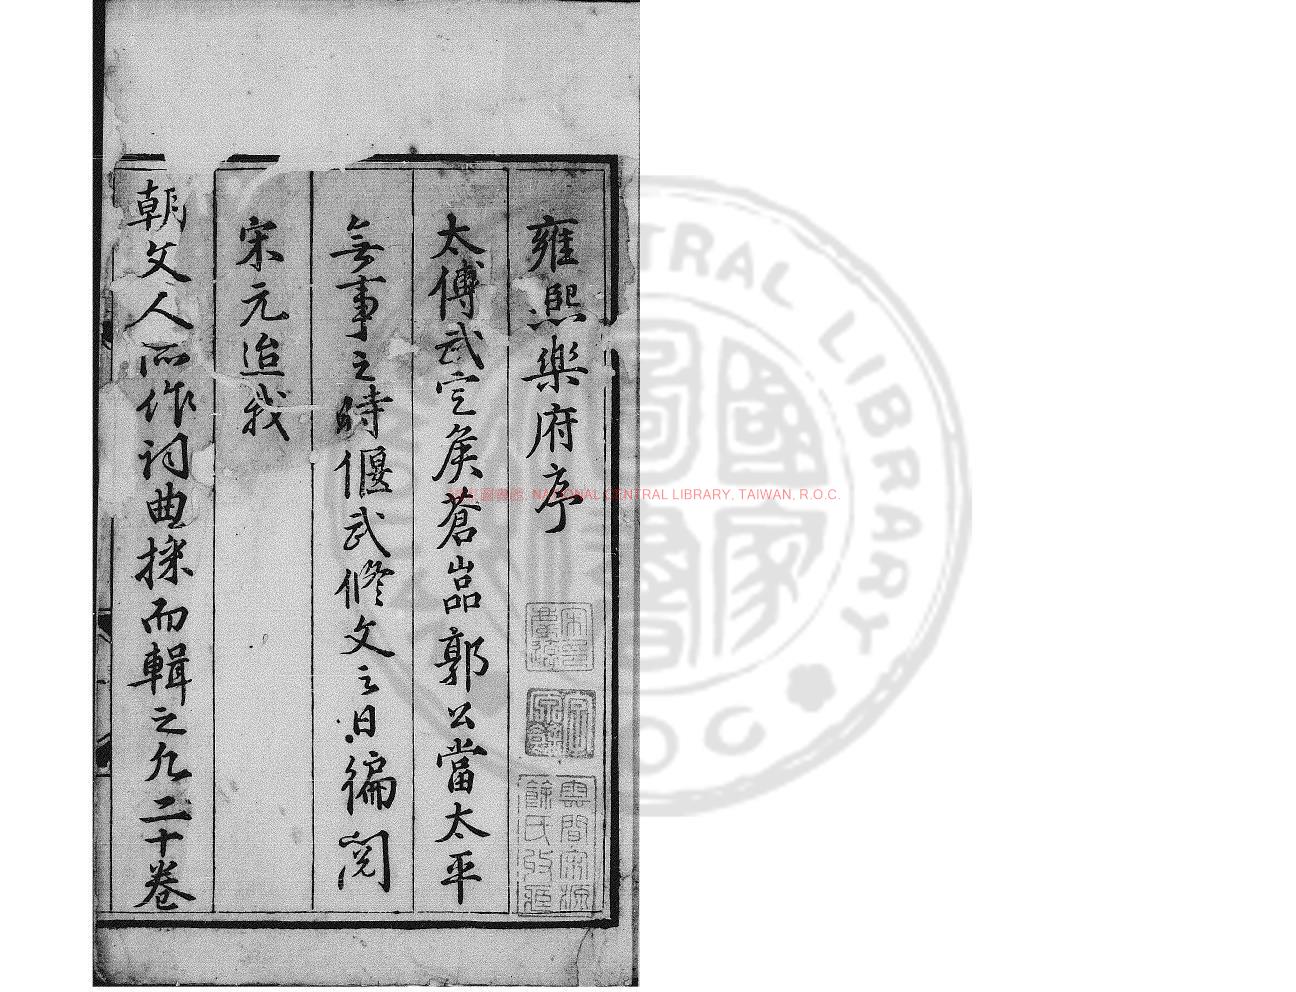 雍熙樂府序
太傅武定侯蒼嵓郭公當太平
無事之時偃武修文之日徧閱
宋元迨我
朝文人所作詞曲採而輯之凡二十卷
NATIONAL CENTRAL LIBRARY, TAIWAN, R.O.C.